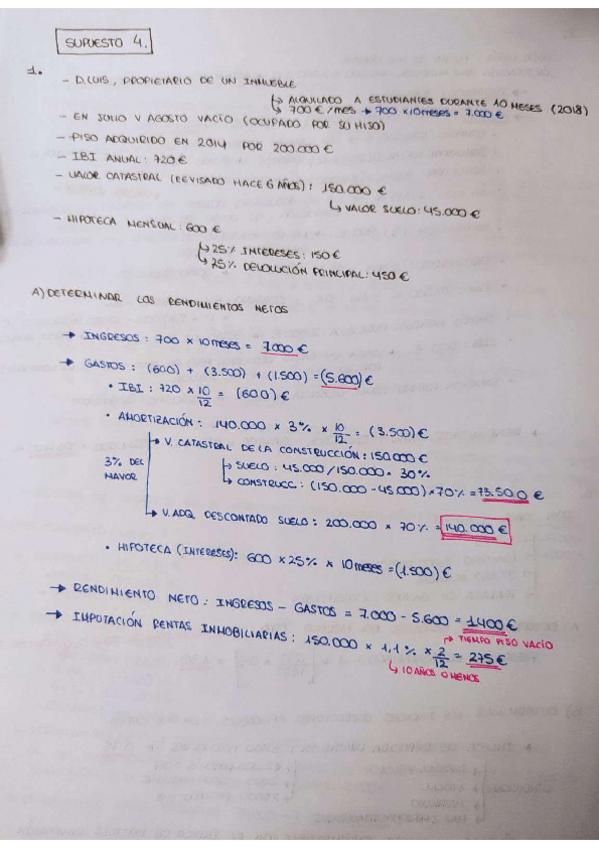 SUPUESTO 4.
1.
- D.LUIS, PROPIETARIO DE UN INMUEBLE
↳ ALQUILADO A ESTUDIANTES DURANTE 10 MESES (2018)
↳ 700 €/MES → 700 x 10 MESES = 7.000 €
- EN JULIO Y AGOSTO VACÍO (OCUPADO POR SU HIJO)
- PISO ADQUIRIDO EN 2014 POR 200.000 €
- IBI ANUAL: 720 €
- VALOR CATASTRAL (REVISADO HACE 6 AÑOS): 150.000 €
↳ VALOR SUELO: 45.000 €
- HIPOTECA MENSUAL: 600 €
↳ 25% INTERESES: 150 €
↳ 25% DEVOLUCIÓN PRINCIPAL: 450 €
A) DETERMINAR LOS RENDIMIENTOS NETOS
→ INGRESOS: 700 x 10 MESES = 7.000 €
→ GASTOS: (600) + (3.500) + (1.500) = (5.600) €
• IBI: 720 x 10/12 = (600) €
• AMORTIZACIÓN: 140.000 x 3% x 10/12 = (3.500) €
→ V. CATASTRAL DE LA CONSTRUCCIÓN: 150.000 €
3% DEL MAYOR
↳ SUELO: 45.000/150.000 = 30%
↳ CONSTRUCC: (150.000 - 45.000) x 70% = 73.500 €
→ V. ADQ DESCONTADO SUELO: 200.000 x 70% = 140.000 €
• HIPOTECA (INTERESES): 600 x 25% x 10 MESES = (1.500) €
→ RENDIMIENTO NETO: INGRESOS - GASTOS = 7.000 - 5.600 = 1.400 €
→ IMPUTACIÓN RENTAS INMOBILIARIAS: 150.000 x 1,1% x 2/12 = 275 €
↳ TIEMPO PISO VACÍO
↳ 10 AÑOS O MENOS